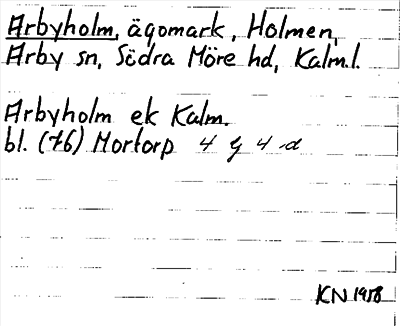 Arbyholm, ägomark, Holmen,
Arby sn, Södra Möre hd, Kalm.l.
Arbyholm ek Kalm.
bl. (76) Mortorp 4 g 4 d
KN 1958